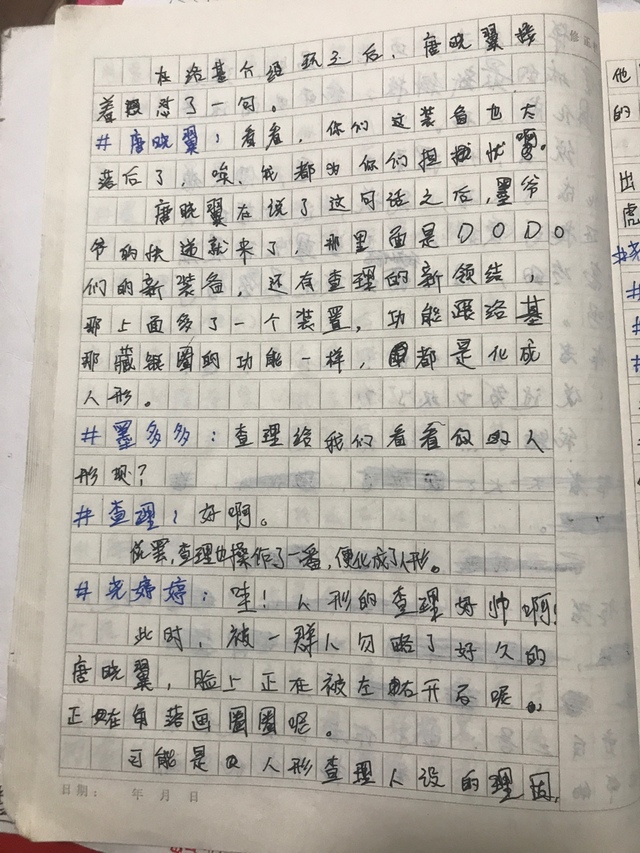 在给基介绍环之后，唐晓翼接
着怼了一句。
#唐晓翼：看看，你们这装备也太
落后了，唉，我都为你们担忧啊。
唐晓翼在说了这句话之后，墨爷
爷的快递就来了，那里面是DODO
们的新装备，还有查理的新领结，
那上面多了一个装置，功能跟给基
那藏银圈的功能一样，都是化成
人形。
#墨多多：查理给我们看看你的人
形现？
#查理：好啊。
说罢，查理也操作了一番，便化成了人形。
#尧婷婷：哇！人形的查理好帅啊！
此时，被一群人勿略了好久的
唐晓翼，脸上正在被左右开弓呢。
正在角落画圈圈呢。
可能是人形查理人设的理因，
日期： 年 月 日
他
的
出
虎